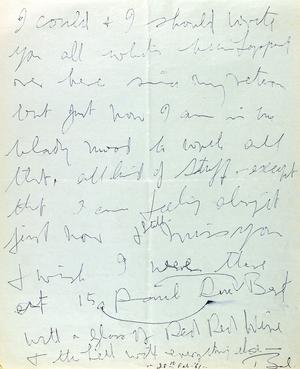 I could & I should write
you all what's been happened
over here since my return
but just now I am in no
bloody mood to write all
that, all kind of stuff - except
that I am feeling alright
just now & still miss you
I wish I were there
at 15
with a glass of Red Red Wine
& the hell with everything else -